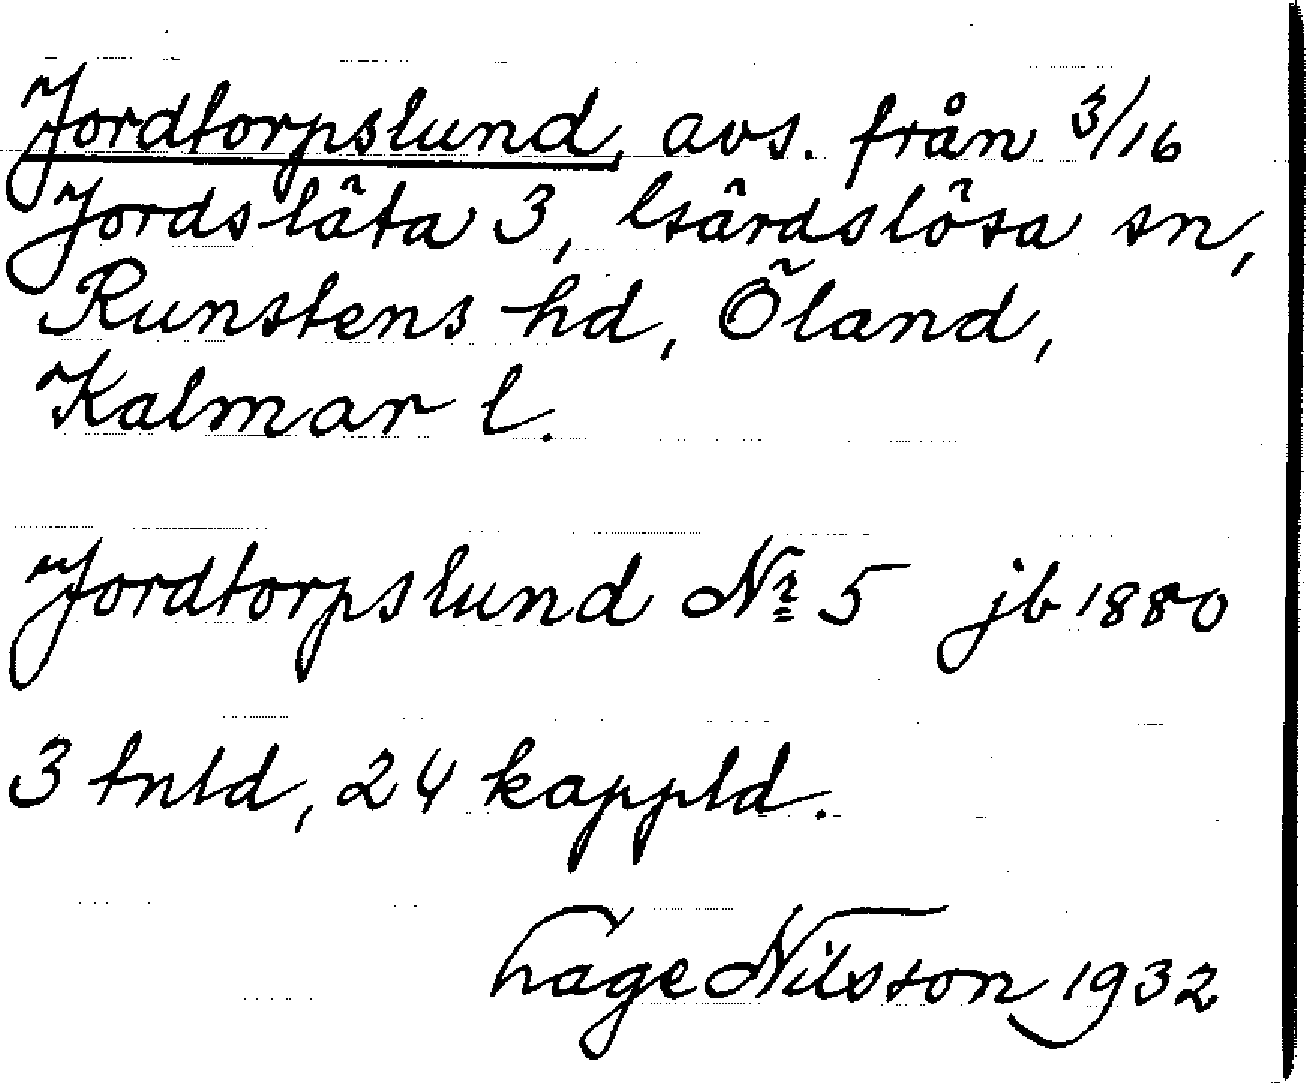 Jordtorpslund, avs. från 3/16
Jordsläta 3, Gärdslösa sn,
Runstens hd, Öland,
Kalmar l.
Jordtorpslund № 5 jb 1880
3 tnld, 24 kappld.
Hage Nilsson 1932